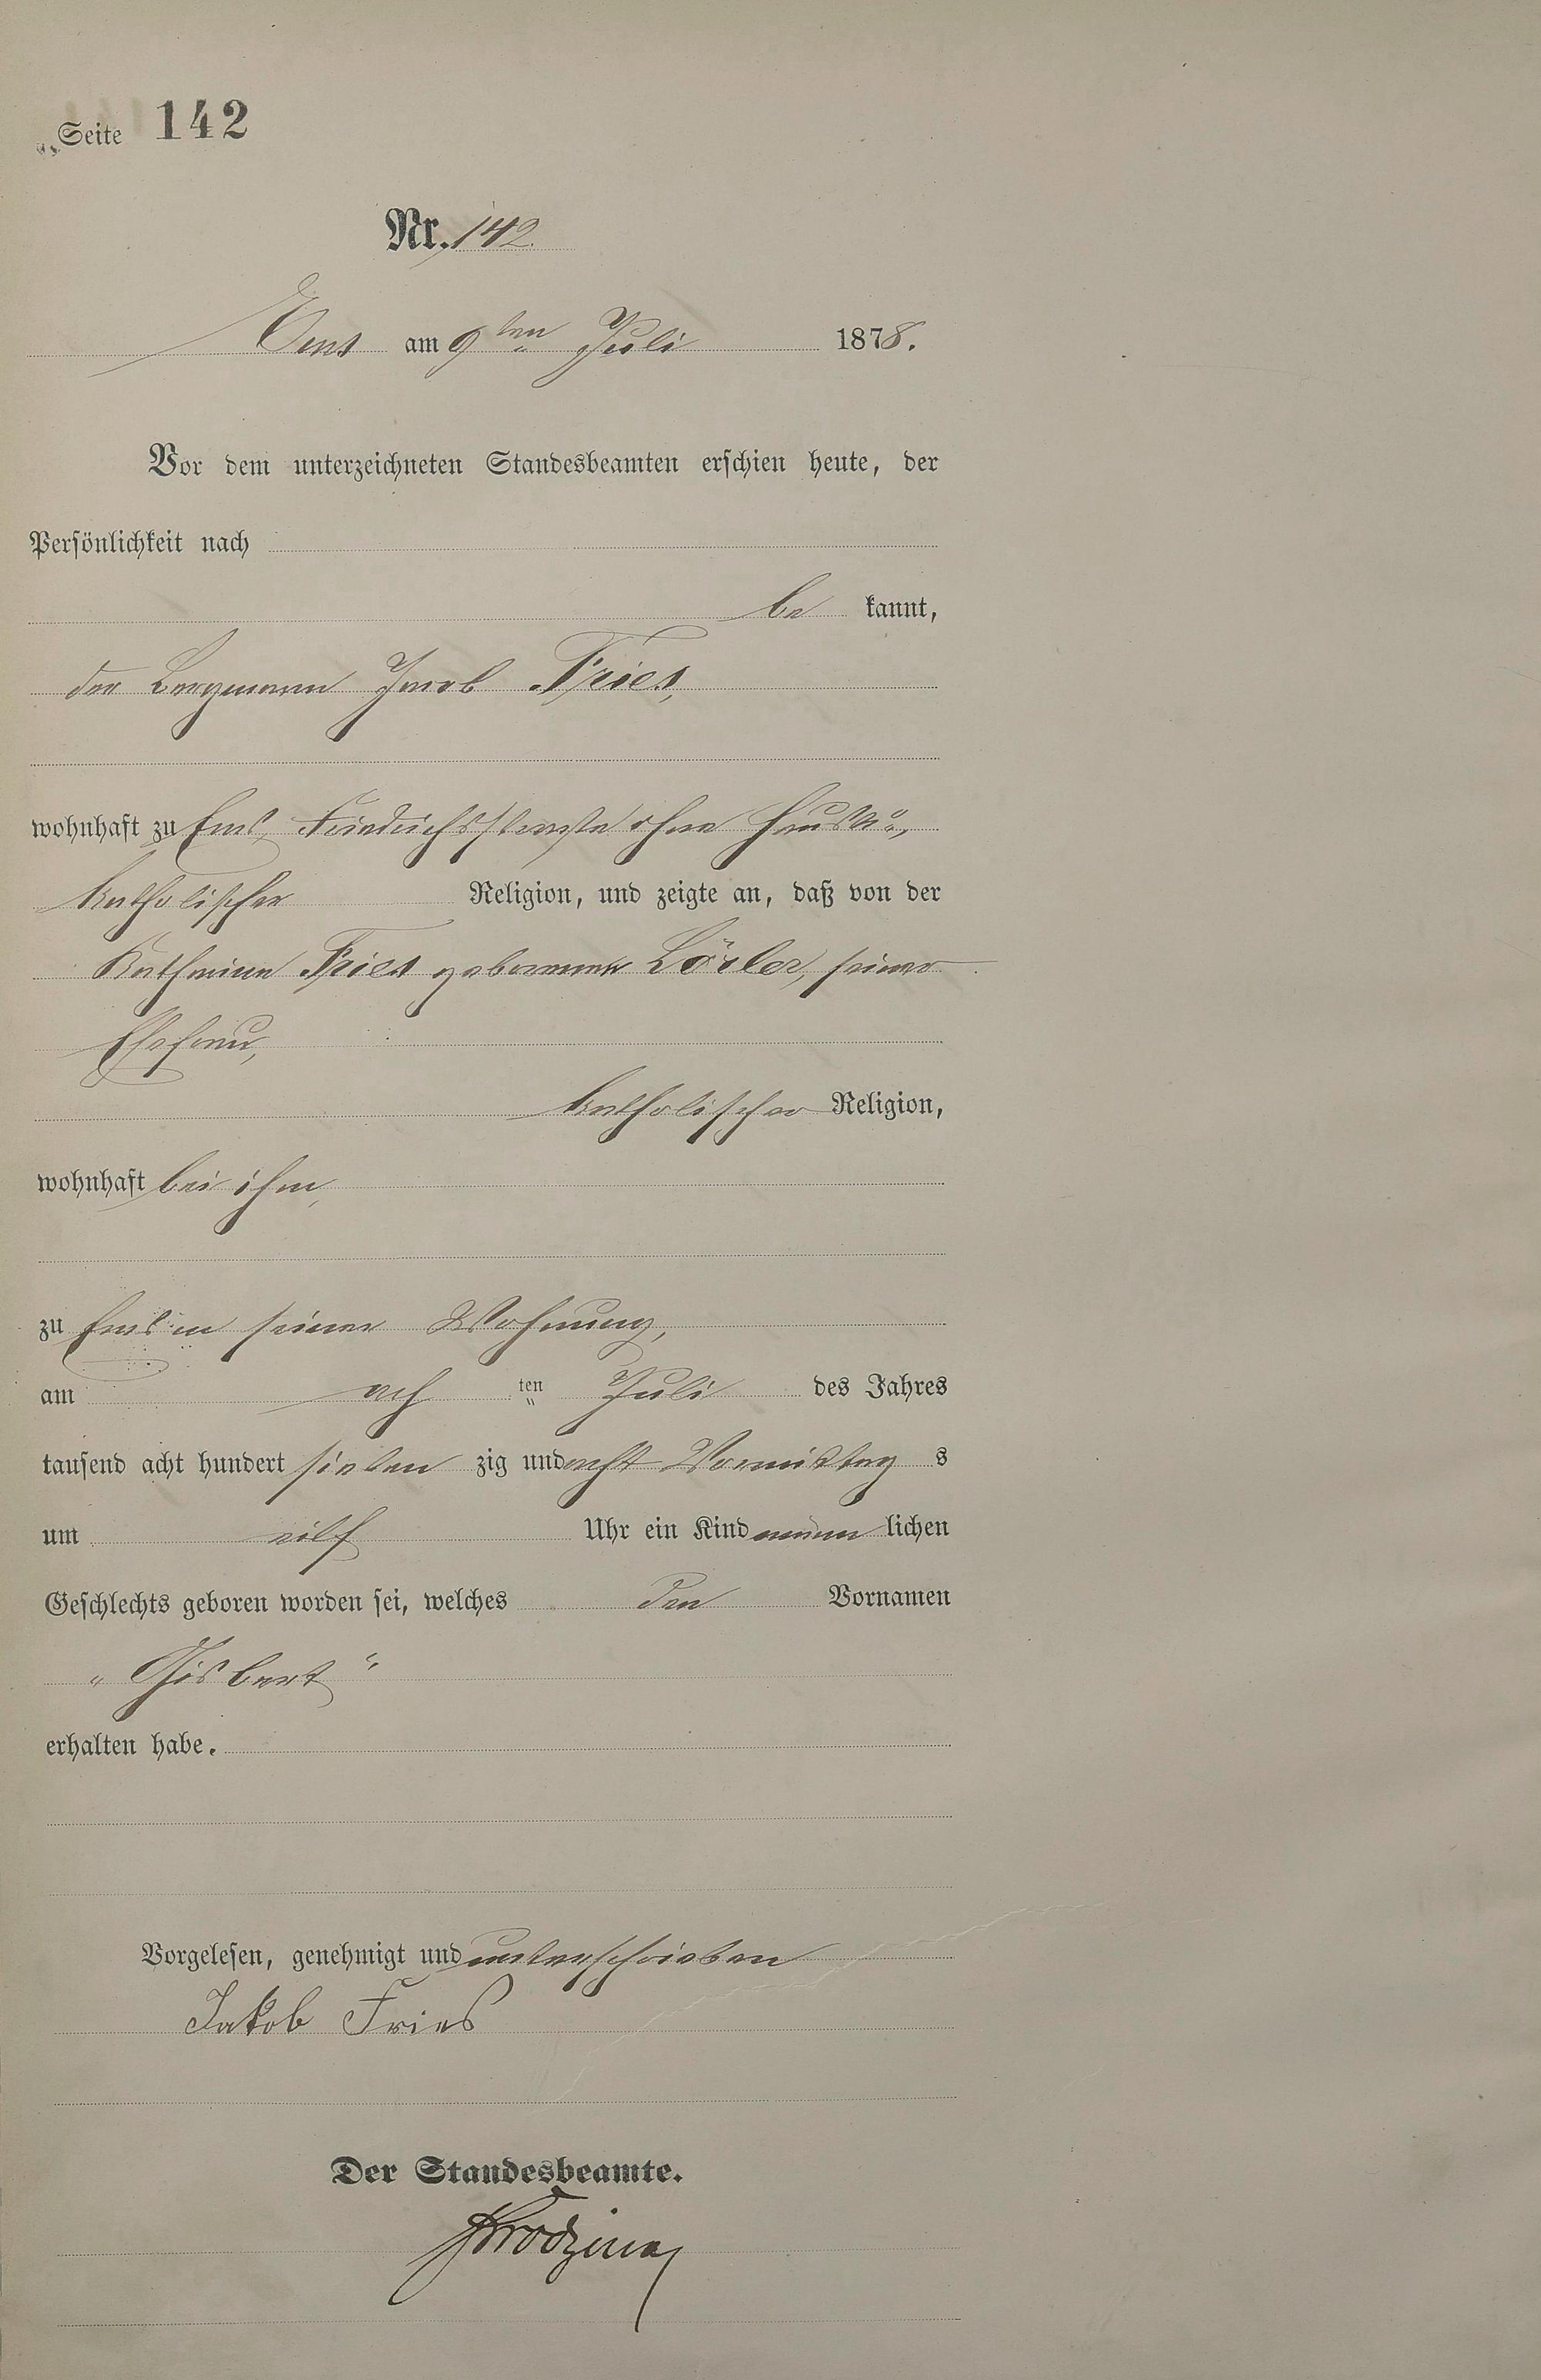 Seite 142
Nr. 142.
Ems am 9ten Juli 1878.
Vor dem unterzeichneten Standesbeamten erschien heute, der
Persönlichkeit nach
be kannt,
der Bergmann Jacob Fries,
wohnhaft zu Ems, Friedrichsstraße ohne Haus No,
katholischer Religion, und zeigte an, daß von der
Katharina Fries geborenen Lösler, seiner
Ehefrau,
katholischer Religion,
wohnhaft bei ihm,
zu Ems in seiner Wohnung,
am ach ten Juli des Jahres
tausend acht hundert sieben zig und acht Vormittag s
um eilf Uhr ein Kind männ lichen
Geschlechts geboren worden sei, welches den Vornamen
„Gisbert“
erhalten habe.
Vorgelesen, genehmigt und unterschrieben
Jakob Fries
Der Standesbeamte.